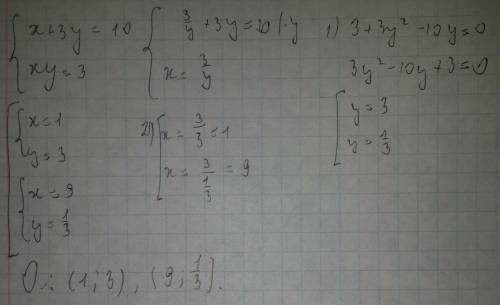 { x+3y=10
xy=3
{ 3/y +3y=10 |·y
x= 3/y
1) 3+3y² -10y=0
3y²-10y+3=0
[ y=3
y= 1/3
2) [ x= 3/3 =1
x= 3/(1/3) =9
[ { x=1
y=3
{ x=9
y= 1/3
О.: (1; 3), (9; 1/3).